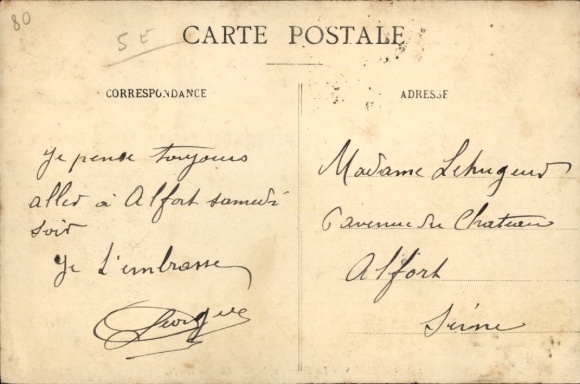 80
5 E
CARTE POSTALE
CORRESPONDANCE
ADRESSE
Je pense toujours
aller à Alfort samedi
soir
Je t'embrasse
Georges
Madame
6 avenue du Chateau
Alfort
Seine